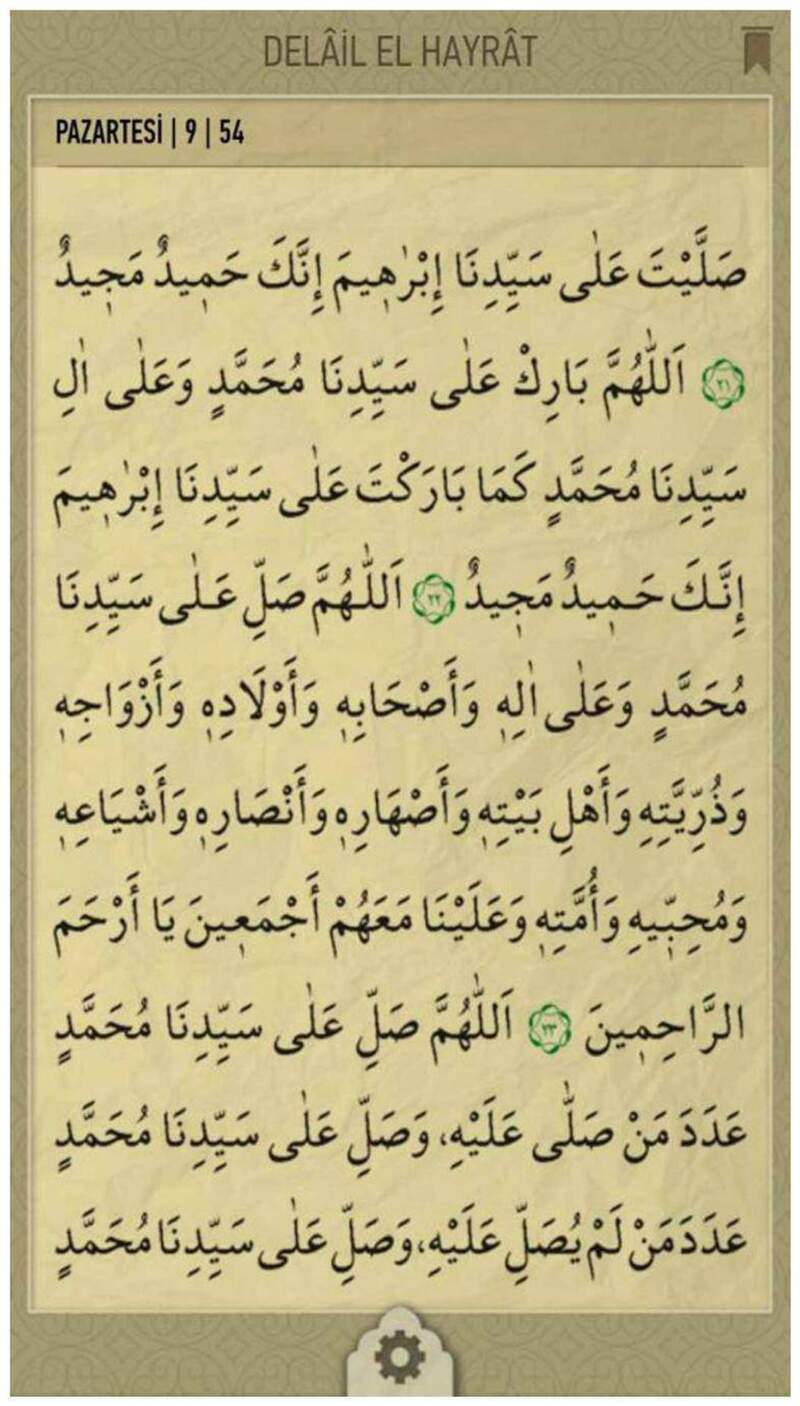 DELÂİL EL HAYRÂT
PAZARTESİ | 9 | 54
صَلَّيْتَ عَلٰى سَيِّدِنَا إِبْرٰهٖيمَ إِنَّكَ حَمٖيدٌ مَجٖيدٌ
٢١ اَللّٰهُمَّ بَارِكْ عَلٰى سَيِّدِنَا مُحَمَّدٍ وَعَلٰى اٰلِ
سَيِّدِنَا مُحَمَّدٍ كَمَا بَارَكْتَ عَلٰى سَيِّدِنَا إِبْرٰهٖيمَ
إِنَّكَ حَمٖيدٌ مَجٖيدٌ ٢٢ اَللّٰهُمَّ صَلِّ عَلٰى سَيِّدِنَا
مُحَمَّدٍ وَعَلٰى اٰلِهٖ وَأَصْحَابِهٖ وَأَوْلَادِهٖ وَأَزْوَاجِهٖ
وَذُرِّيَّتِهٖ وَأَهْلِ بَيْتِهٖ وَأَصْهَارِهٖ وَأَنْصَارِهٖ وَأَشْيَاعِهٖ
وَمُحِبّٖيهِ وَأُمَّتِهٖ وَعَلَيْنَا مَعَهُمْ أَجْمَعٖينَ يَا أَرْحَمَ
الرَّاحِمٖينَ ٢٣ اَللّٰهُمَّ صَلِّ عَلٰى سَيِّدِنَا مُحَمَّدٍ
عَدَدَ مَنْ صَلّٰى عَلَيْهِ، وَصَلِّ عَلٰى سَيِّدِنَا مُحَمَّدٍ
عَدَدَ مَنْ لَمْ يُصَلِّ عَلَيْهِ، وَصَلِّ عَلٰى سَيِّدِنَا مُحَمَّدٍ